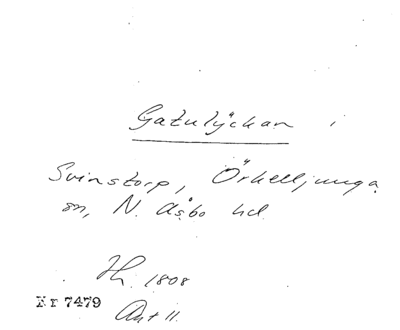 Gatulyckan i
Svinstorp, Örkelljunga
sn, N. Åsbo hd
Th. 1808
Nr 7479
Akt 11.